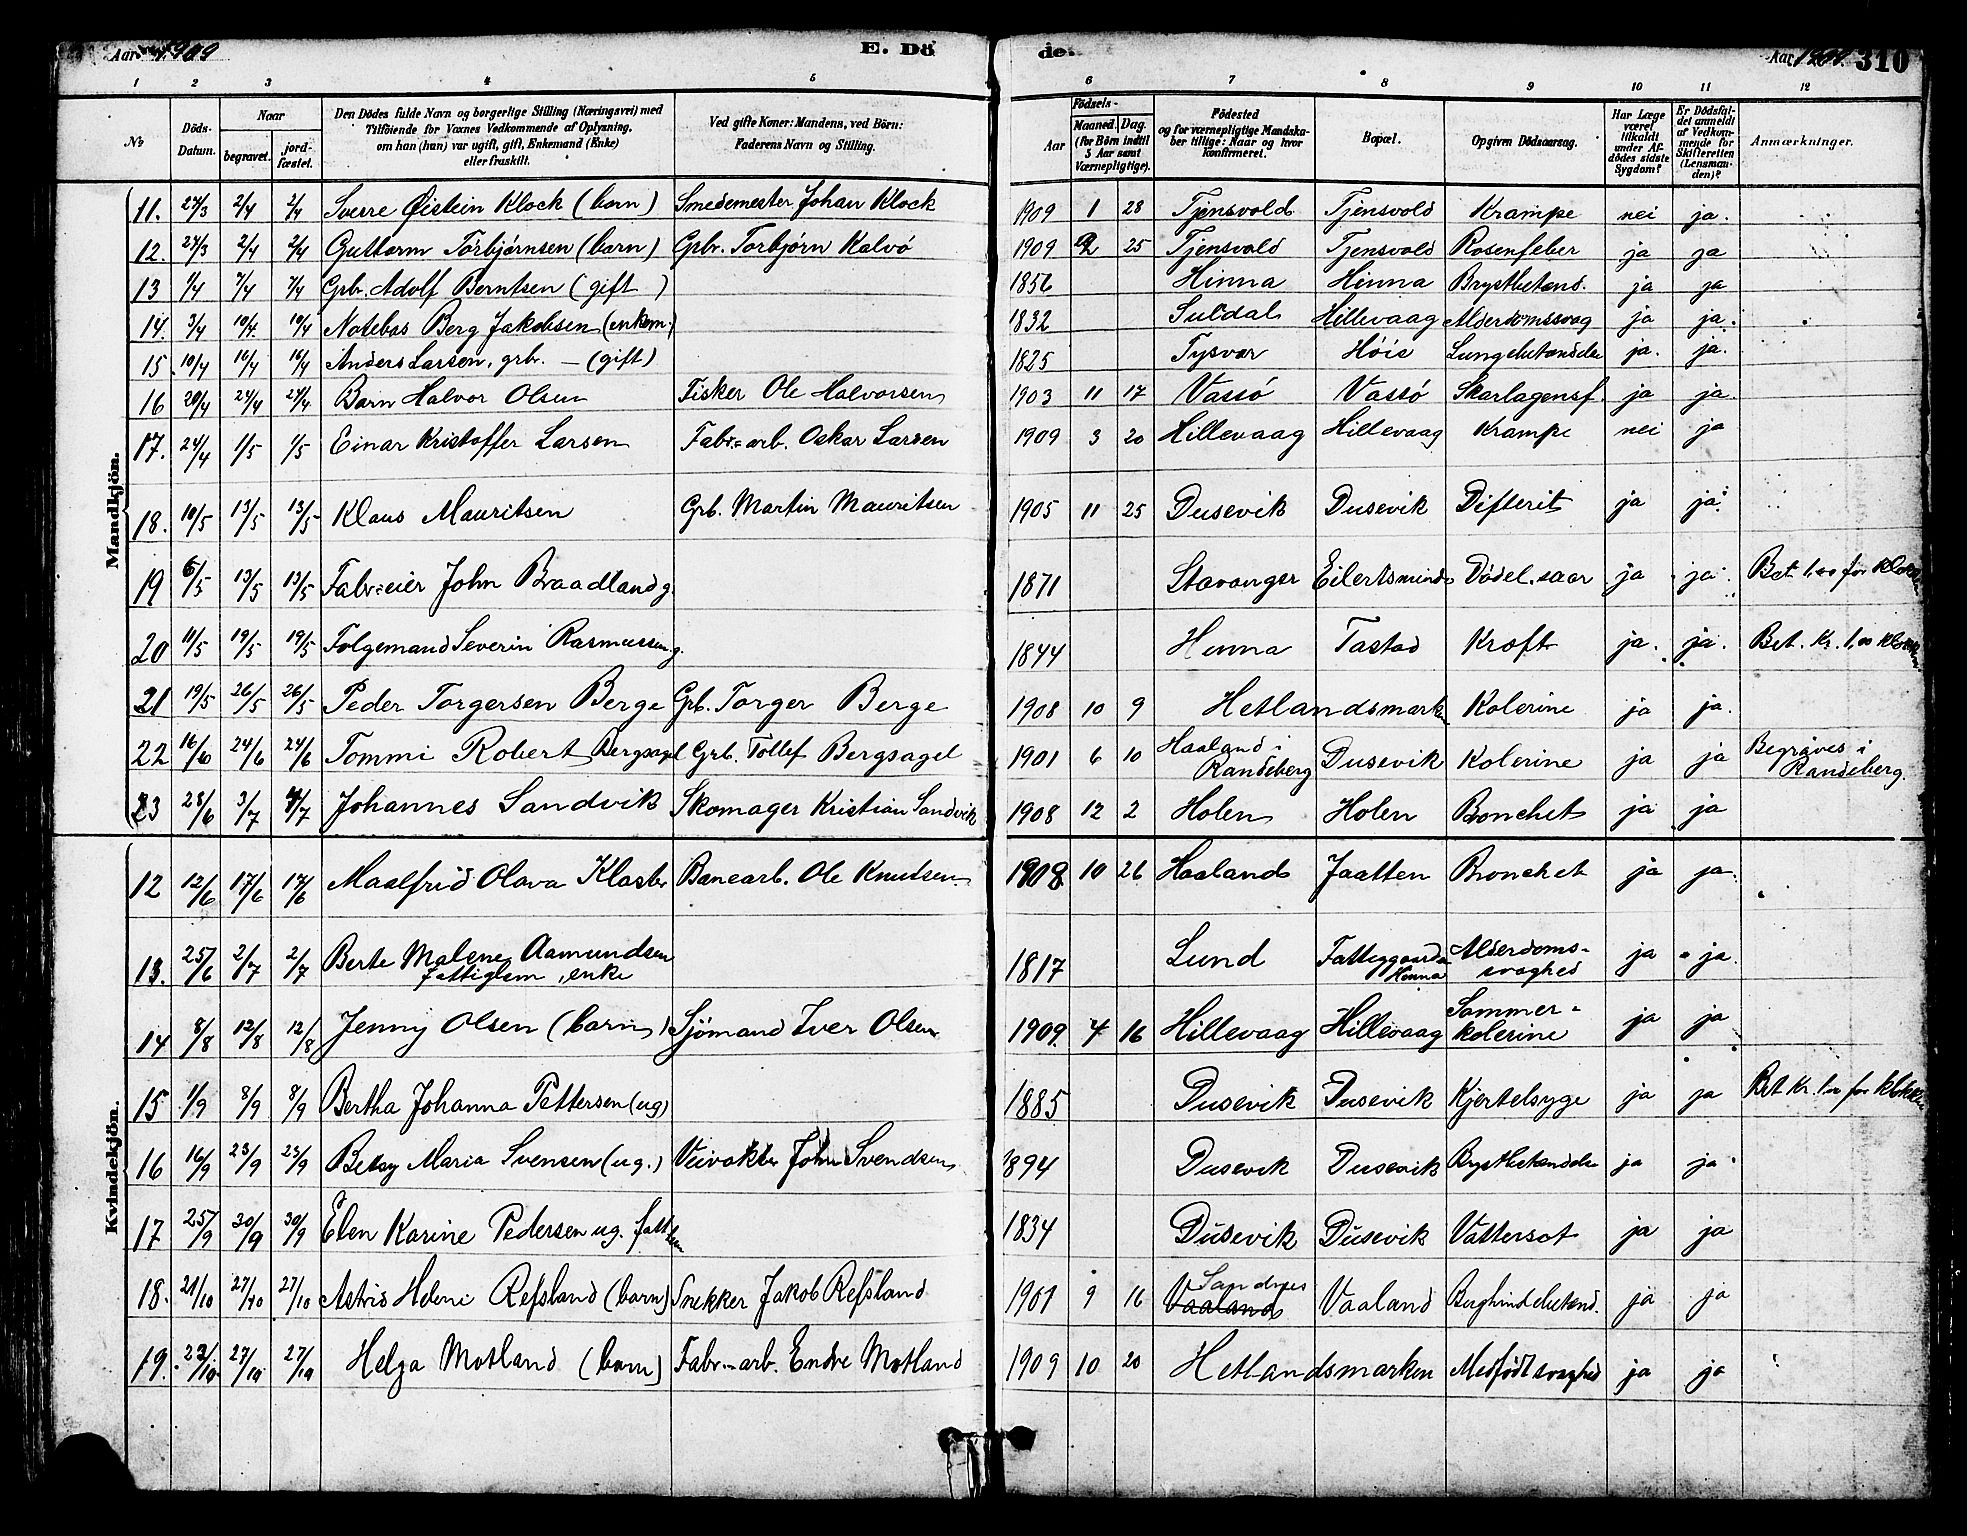 Aar 1909 E. Dö
de. Aar 1909. 310
1 2 3 4 5 6 7 8 9 10 11 12
No
Döds-Datum.
Naar
begravet.
jordfæstet.
Den Dödes fulde Navn og borgerlige Stilling (Næringsvei) med
Tilföiende for Voxnes Vedkommende af Oplysning,
om han (hun) var ugift, gift, Enkemand (Enke)
eller fraskilt.
Ved gifte Koner: Mandens, ved Börn:
Faderens Navn og Stilling.
Födsels-
Aar
Maaned.
Dag.
(for Börn indtil
5 Aar samt
Værnepligtige).
Födested
og for værnepligtige Mandska-
ber tillige: Naar og hvor
konfirmeret.
Bopæl.
Opgiven Dödsaarsag.
Har Læge
været
tilkaldt
under Af-
dödes sidste
Sygdom?
Er Dödsfal-
det anmeldt
af Vedkom-
mende for
Skifteretten
(Lensman-
den)?
Anmærkninger.
Mandkjön.
11. 27/3 2/4 2/4 Sverre Øistein Klock (barn) Smedemester Johan Klock 1909 1 28 Tjensvold Tjensvold Krampe nei ja.
12. 27/3 2/4 2/4 Guttorm Torbjørnsen (barn) Gbr. Torbjörn Kalvö 1909 2 25 Tjensvold Tjensvold Rosenfeber ja ja
13 1/4 7/4 7/4 Grbr. Adolf Berntsen (gift) 1856 Hinna Hinna Brystbetænd. ja ja
14. 3/4 10/4 10/4 Notebas Berg Jakobsen (enkem.) 1832 Suldal Hillevaag Alderdomssvag ja ja.
15 10/4 16/4 16/4 Anders Larsen, grbr. – (gift) 1825 Tysvær Höie Lungebetændelse ja. ja.
16 20/4 24/4 24/4 Barn Halvor Olsen Fisker Ole Halvorsen 1903 11 17 Vassö Vassö Skarlagensf. ja ja
17. 24/4 1/5 1/5 Einar Kristoffer Larsen Fabr=arb. Oskar Larsen 1909 3 20 Hillevaag Hillevaag Krampe nei ja
18. 10/5 13/5 13/5 Klaus Mauritsen Grb. Martin Mauritsen 1905 11 25 Dusevik Dusevik Difterit ja ja
19 6/5 13/5 13/5 Fabr=eier John Braadland g. 1871 Stavanger Eilertsminde Dödel. saar ja ja Bet 1,00 for klokken
20 11/5 19/5 19/5 Folgemand Severin Rasmussen g. 1844 Hinna Tastad Kræft ja. ja. Bet. Kr. 1,00 klokken
21 19/5 26/5 26/5 Peder Torgersen Berge Grb. Torger Berge 1908 10 9 Hetlandsmarken Kolerine ja ja.
22 16/6 24/6 24/6 Tommi Robert Bergsagel Grb. Tollef Bergsagel 1901 6 10 Haaland i Randeberg Dusevik Kolerine ja ja Begraves i Randeberg.
23 28/6 3/7 4/7 Johannes Sandvik Skomager Kristian Sandvik 1908 12 2 Holen Holen Bronchet ja ja
Kvindekjön.
12 12/6 17/6 17/6 Maalfrid Olava Kloster Banearb. Ole Knutsen 1908 10 26 Haaland Jaatten Bronchet ja ja.
13. 25/6 2/7 2/7 Berte Malene Aamundsen
fattiglem, enke 1817 Lund Fattiggaarden Hinna Alderdoms-
svaghed ja ja.
14 8/8 12/8 12/8 Jenny Olsen (barn) Sjömand Iver Olsen 1909. 4 16 Hillevaag Hillevaag Sommer-
kolerine ja ja
15 1/9 8/9 8/9 Bertha Johanna Pettersen (ug) 1885 Dusevik Dusevik Kjertelsyge ja ja Bet Kr. 1,00 for klokken
16 16/9 23/9 23/9 Betsy Maria Svensen (ug.) Veivokter John Svendsen 1894 Dusevik Dusevik Brystbetændelse ja ja
17 25/9 30/9 30/9 Elen Karine Pedersen ug. fattiglem 1834 Dusevik Dusevik Vattersot ja ja
18. 21/10 27/10 27/10 Astrid Helene Refsland (barn) Snekker Jakob Refsland 1901 9 16 Sandnes Vaaland Vaaland Bughindebetænd. ja ja
19. 22/10. 27/10 27/10 Helga Motland (barn) Fabr=arb. Endre Motland 1909 10 20 Hetlandsmarken Medfödt svaghed ja ja